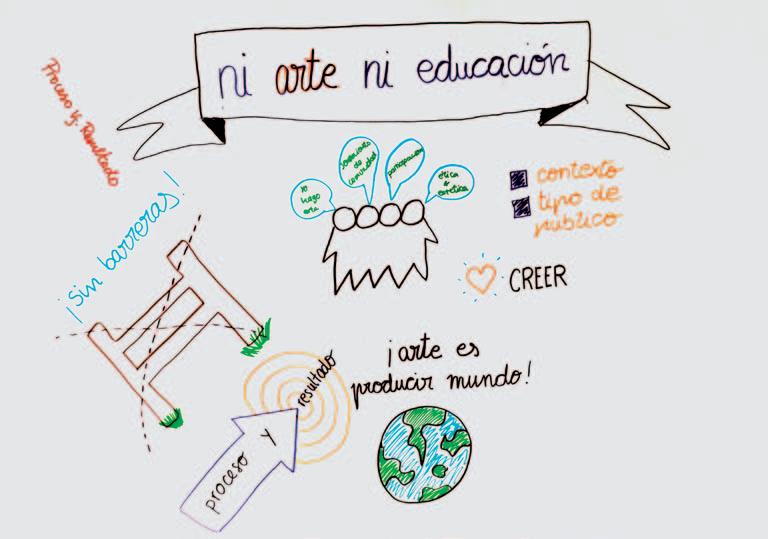 ni arte ni educación
Proceso y Resultado
¡sin barreras!
yo
hago
arte
de
participación
ética
estética
contexto
tipo de
público
CREER
¡arte es
producir mundo!
resultado
proceso y